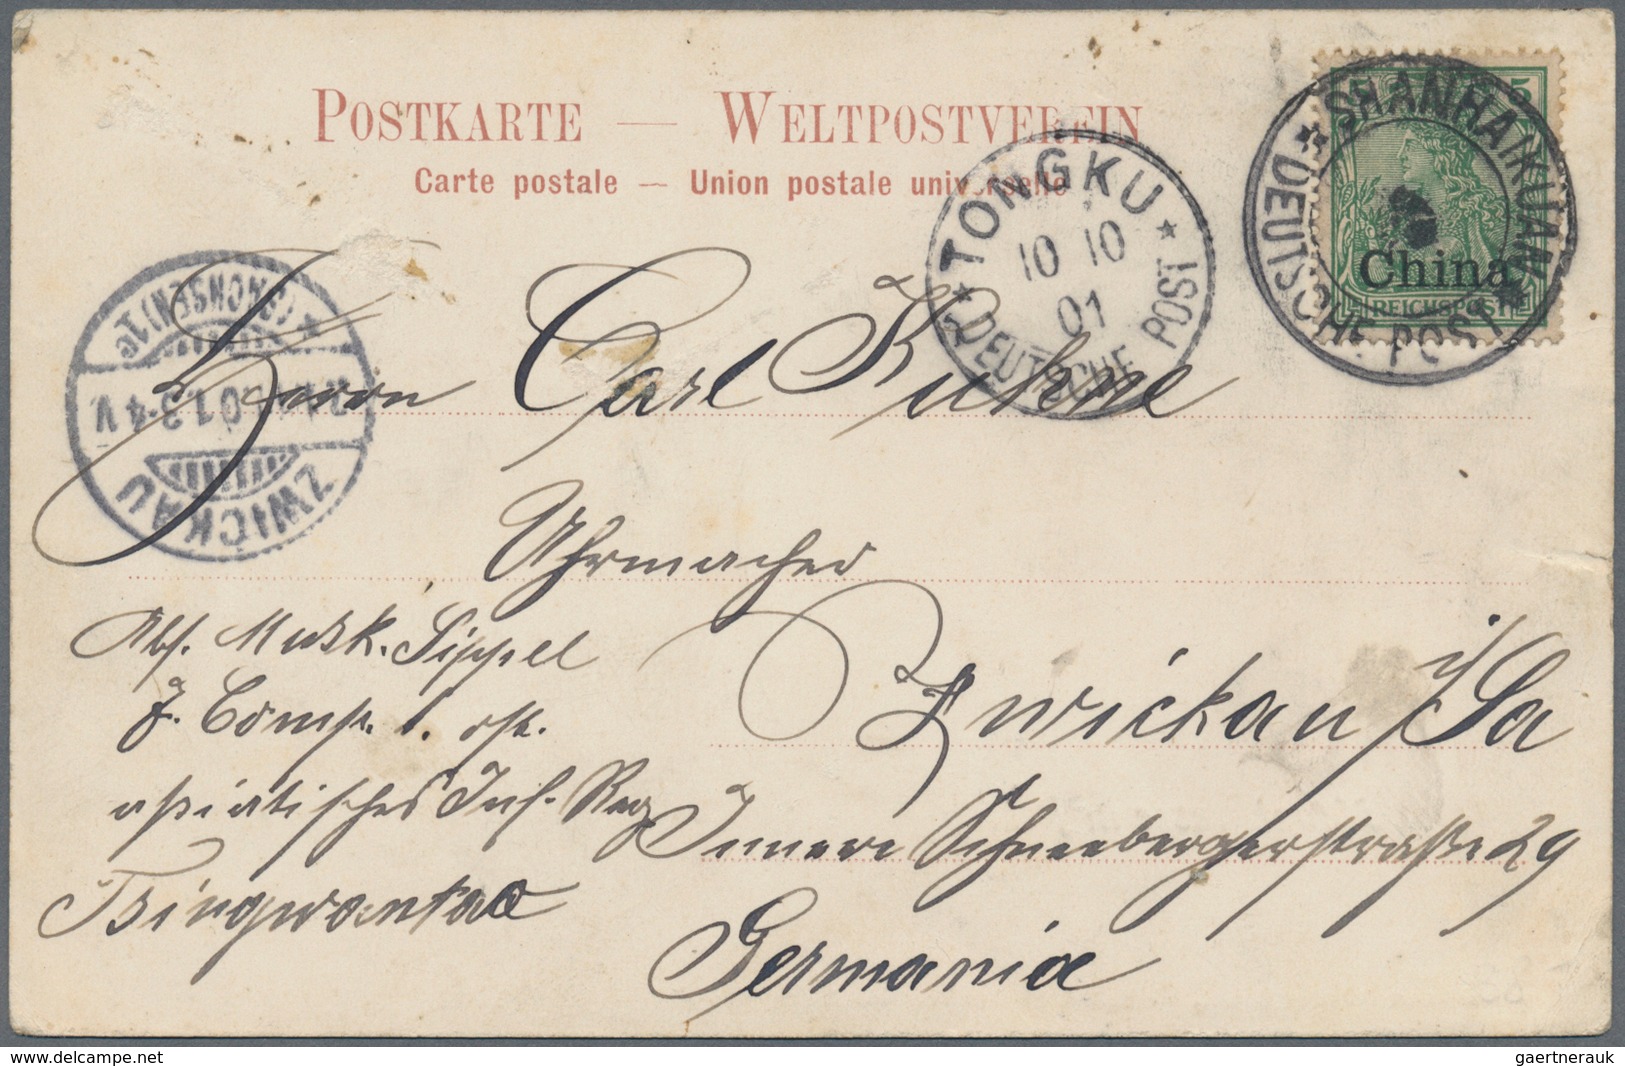 POSTKARTE — WELTPOSTVEREIN
Carte postale — Union postale universelle
5
China
REICHSPOST
* SHANHAIKUAN *
DEUTSCHE POST
* TONGKU *
10 10
01
DEUTSCHE POST
ZWICKAU
01.3-4 V.
* (SACHSEN) 1c
Herrn Carl Kuhne
Uhrmacher
Zwickau i/Sa
Innere Schneebergerstraße 29
Germania
Abs. Musk. Sippel
7. Comp. 1. ost.
asiatisches Inf. Reg
Tsingwantao
delcampe.net
gaertnerauk